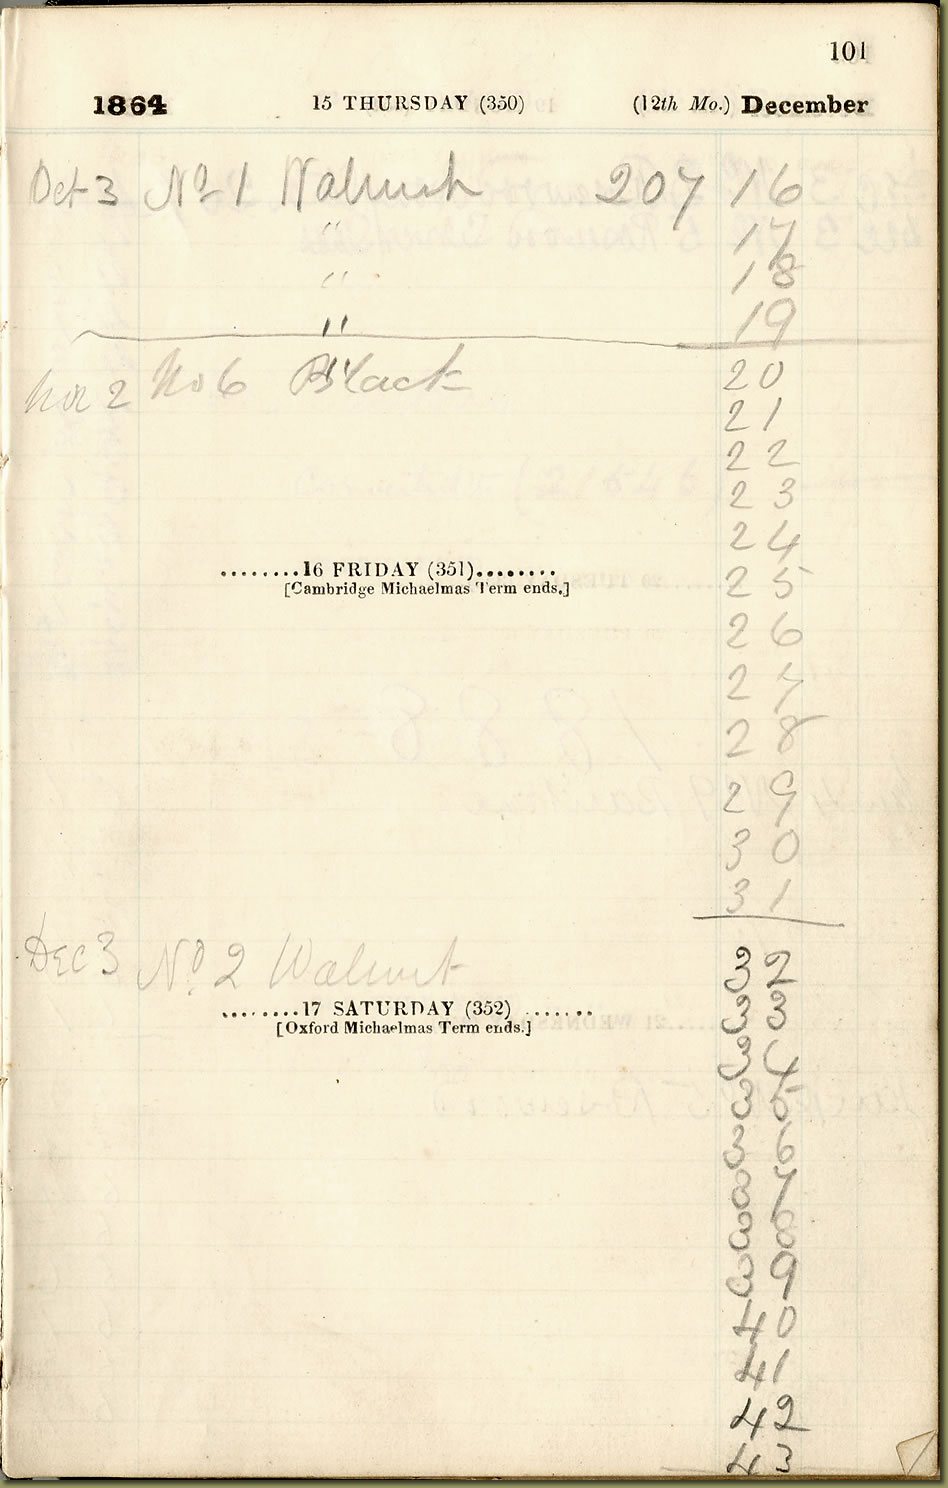 101
1864 15 THURSDAY (350) (12th Mo.) December
Oct 3 No 1 Walnut 207 16
" 17
" 18
" 19
Nov 2 No 6 Black 20
21
22
23
24
........16 FRIDAY (351)........
25
[Cambridge Michaelmas Term ends.]
26
27
28
29
30
31
Dec 3 No 2 Walnut 32
........17 SATURDAY (352) .......
33
[Oxford Michaelmas Term ends.]
34
35
36
37
38
39
40
41
42
43